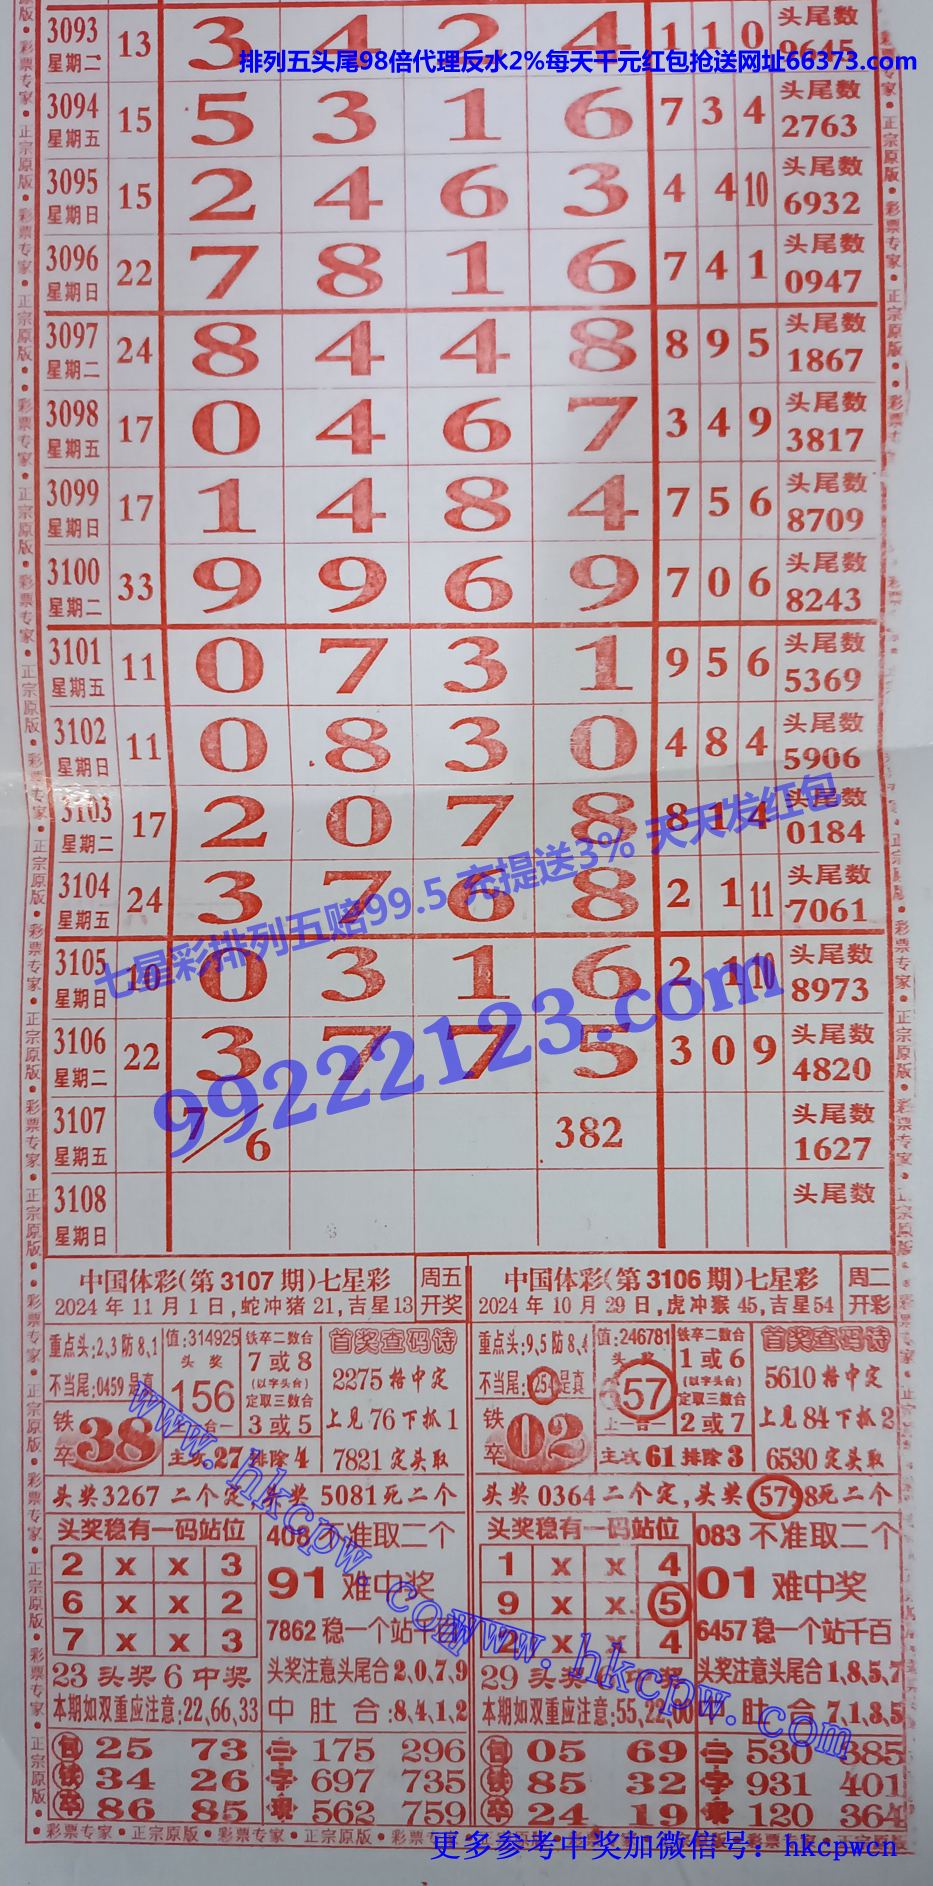 3093 13 3 4 2 4 1 1 0 头尾数
星期二 9645
排列五头尾98倍代理反水2%每天千元红包抢送网址66373.com
3094 15 5 3 1 6 7 3 4 头尾数
星期五 2763
3095 15 2 4 6 3 4 4 10 头尾数
星期日 6932
3096 22 7 8 1 6 7 4 1 头尾数
星期日 0947
3097 24 8 4 4 8 8 9 5 头尾数
星期二 1867
3098 17 0 4 6 7 3 4 9 头尾数
星期五 3817
3099 17 1 4 8 4 7 5 6 头尾数
星期日 8709
3100 33 9 9 6 9 7 0 6 头尾数
星期二 8243
3101 11 0 7 3 1 9 5 6 头尾数
星期五 5369
3102 11 0 8 3 0 4 8 4 头尾数
星期日 5906
3103 17 2 0 7 8 8 1 4 头尾数
星期二 0184
3104 24 3 7 6 8 2 1 11 头尾数
星期五 7061
七星彩排列五赔99.5 充提送3% 天天发红包
3105 10 0 3 1 6 2 1 10 头尾数
星期日 8973
99222123.com
3106 22 3 7 7 5 3 0 9 头尾数
星期二 4820
3107 7/6 382 头尾数
星期五 1627
3108 头尾数
星期日
中国体彩(第3107期)七星彩 周五
2024年11月1日,蛇冲猪21,吉星13 开奖
重点头:2,3防8,1
不当尾:0459是真
铁卒 38
值:314925
头奖
156
合一
铁卒二数合
7或8
(以字头合)
定取三数合
3或5
主攻27排除4
首奖查码诗
2275格中定
上见76下抓1
7821定头取
头奖3267二个定,头奖5081死二个
头奖稳有一码站位
2 x x 3
6 x x 2
7 x x 3
408不准取二个
91难中奖
7862稳一个站千百
23头奖6中奖
头奖注意头尾合2,0,7,9
本期如双重应注意:22,66,33
中肚合:8,4,1,2
包铁卒
25 73
34 26
86 85
二字现
175 296
697 735
562 759
中国体彩(第3106期)七星彩 周二
2024年10月29日,虎冲猴45,吉星54 开彩
重点头:9,5防8,4
不当尾:1254是真
铁卒 02
值:246781
头奖
657
上一合一
铁卒二数合
1或6
(以字头合)
定取三数合
2或7
主攻61排除3
首奖查码诗
5610格中定
上见84下抓2
6530定头取
头奖0364二个定,头奖5798死二个
头奖稳有一码站位
1 x x 4
9 x x 5
2 x x 4
083不准取二个
01难中奖
6457稳一个站千百
29头奖 中奖
头奖注意头尾合1,8,5,7
本期如双重应注意:55,22,00
中肚合 7,1,3,5
包铁卒
05 69
85 32
24 19
二字现
530 385
931 401
120 364
www.hkcpw.com
www.hkcpw.com
彩票专家•正宗原版•彩票专家•正宗原版•彩票专家•正宗原版
更多参考中奖加微信号：hkcpwcn